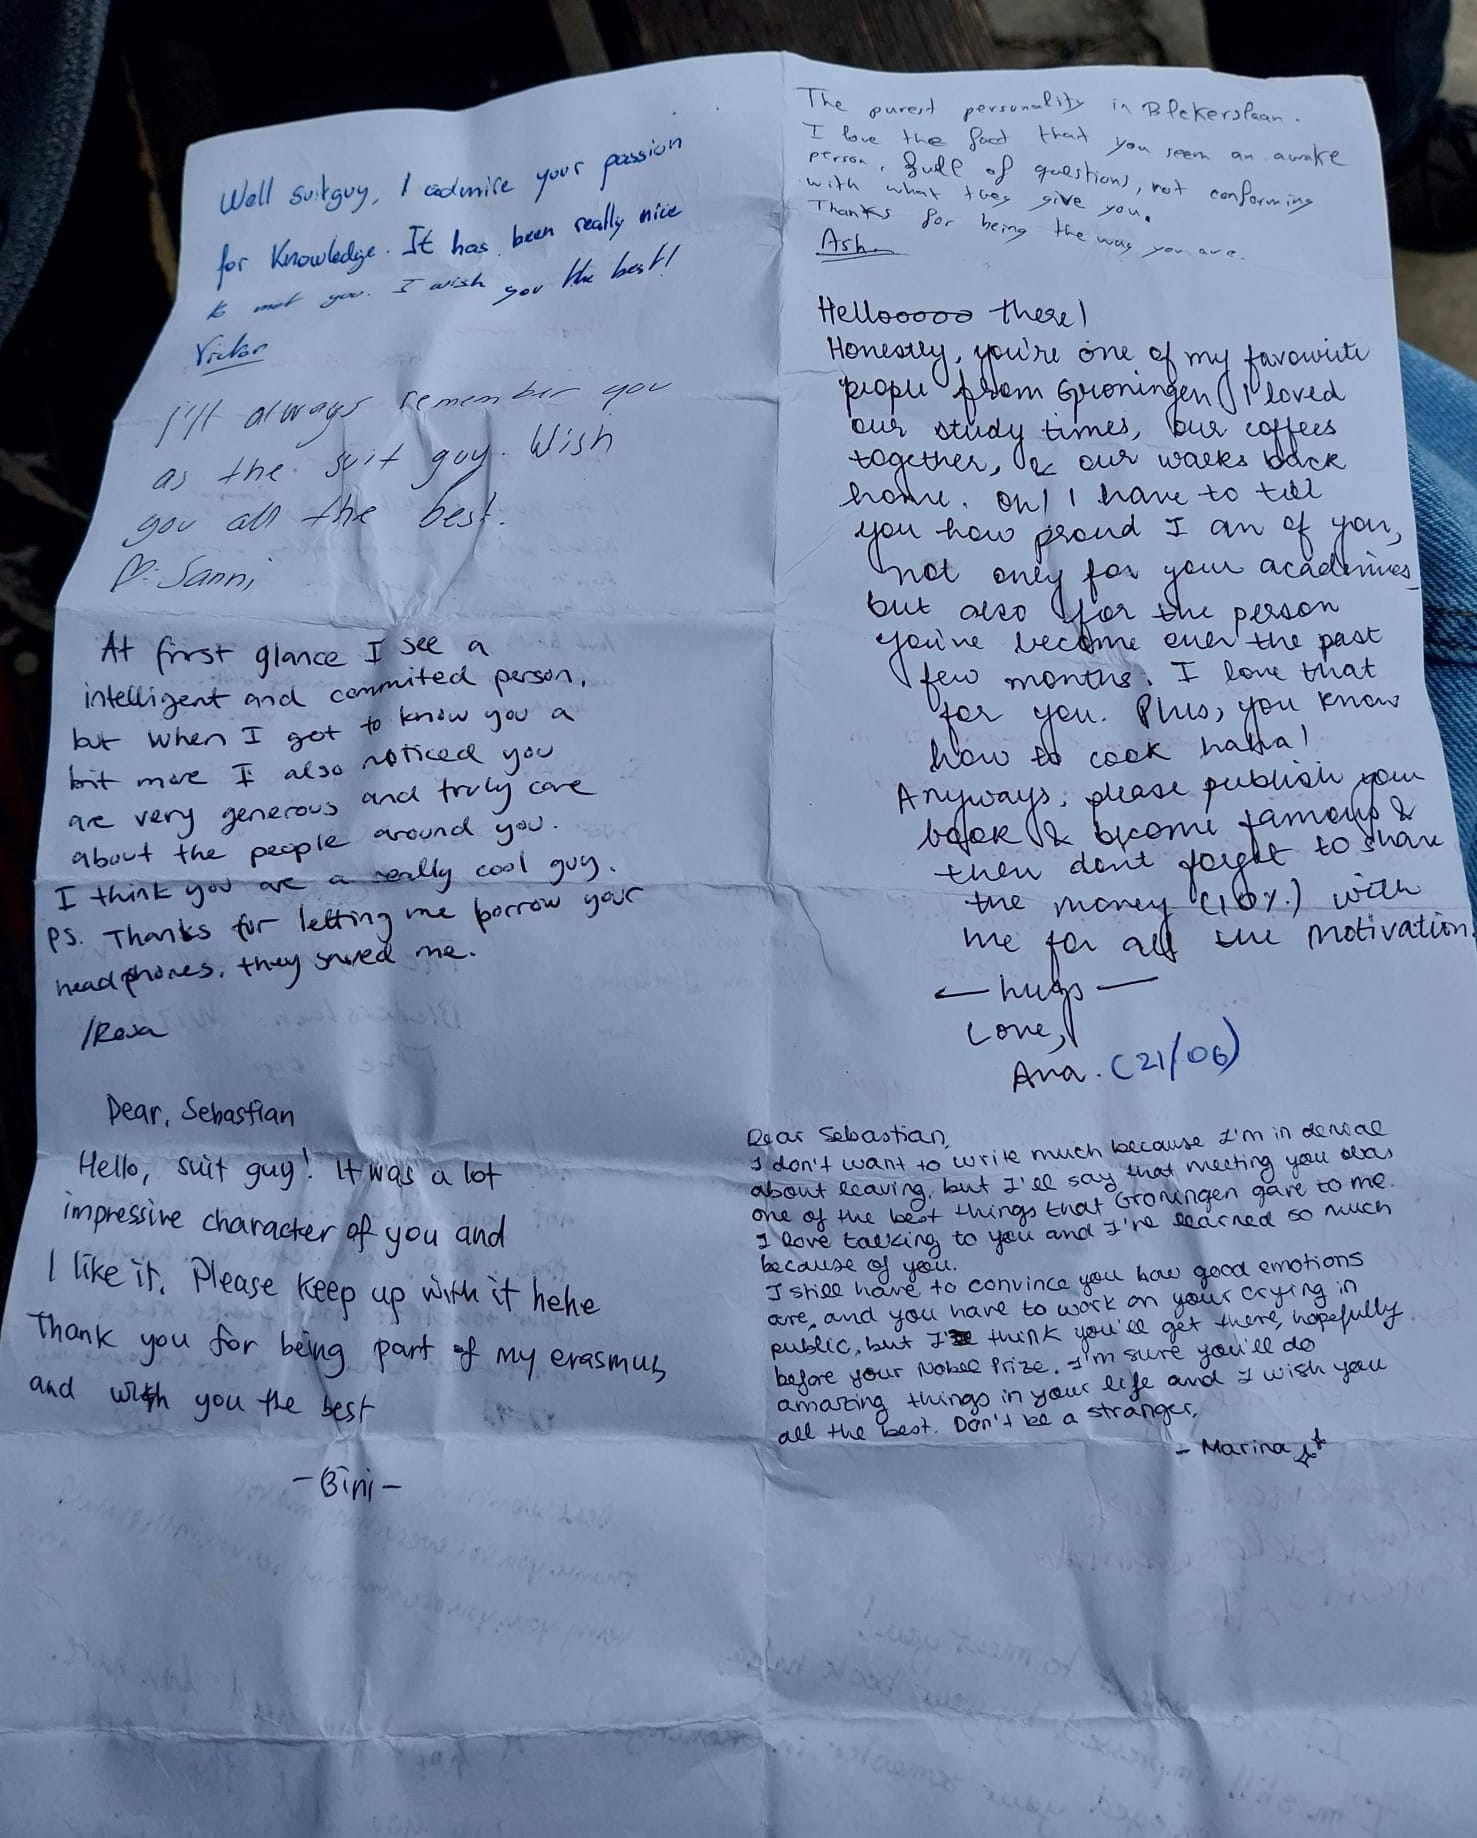 Well suitguy, I admire your passion
for Knowledge. It has been really nice
to met you. I wish you the best!
Victor
I'll always remember you
as the suit guy. Wish
you all the best.
♡: Sanni
At first glance I see a
intelligent and commited person,
but when I got to know you a
bit more I also noticed you
are very generous and truly care
about the people around you.
I think you are a really cool guy.
PS. Thanks for letting me borrow your
headphones, they saved me.
/Rosa
Dear, Sebastian
Hello, suit guy! It was a lot
impressive character of you and
I like it. Please keep up with it hehe
Thank you for being part of my erasmus
and wish you the best
- Bini -
The purest personality in Blekerslaan.
I love the fact that you seem an awake
person, full of questions, not conforming
with what they give you.
Thanks for being the way you are.
Ash
Hellooooo there!
Honestly, you're one of my favourite
people from Groningen. I loved
our study times, our coffees
together, & our walks back
home. Oh! I have to tell
you how proud I am of you,
not only for your academics
but also for the person
you've become over the past
few months. I love that
for you. Plus, you know
how to cook haha!
Anyways, please publish your
book & become famous &
then dont forget to share
the money (10%) with
me for all the motivation.
— hugs —
Love,
Ana. (21/06)
Dear Sebastian,
I don't want to write much because I'm in denial
about leaving, but I'll say that meeting you was
one of the best things that Groningen gave to me.
I love talking to you and I've learned so much
because of you.
I still have to convince you how good emotions
are, and you have to work on your crying in
public, but I think you'll get there, hopefully
before your Nobel Prize. I'm sure you'll do
amazing things in your life and I wish you
all the best. Don't be a stranger,
- Marina